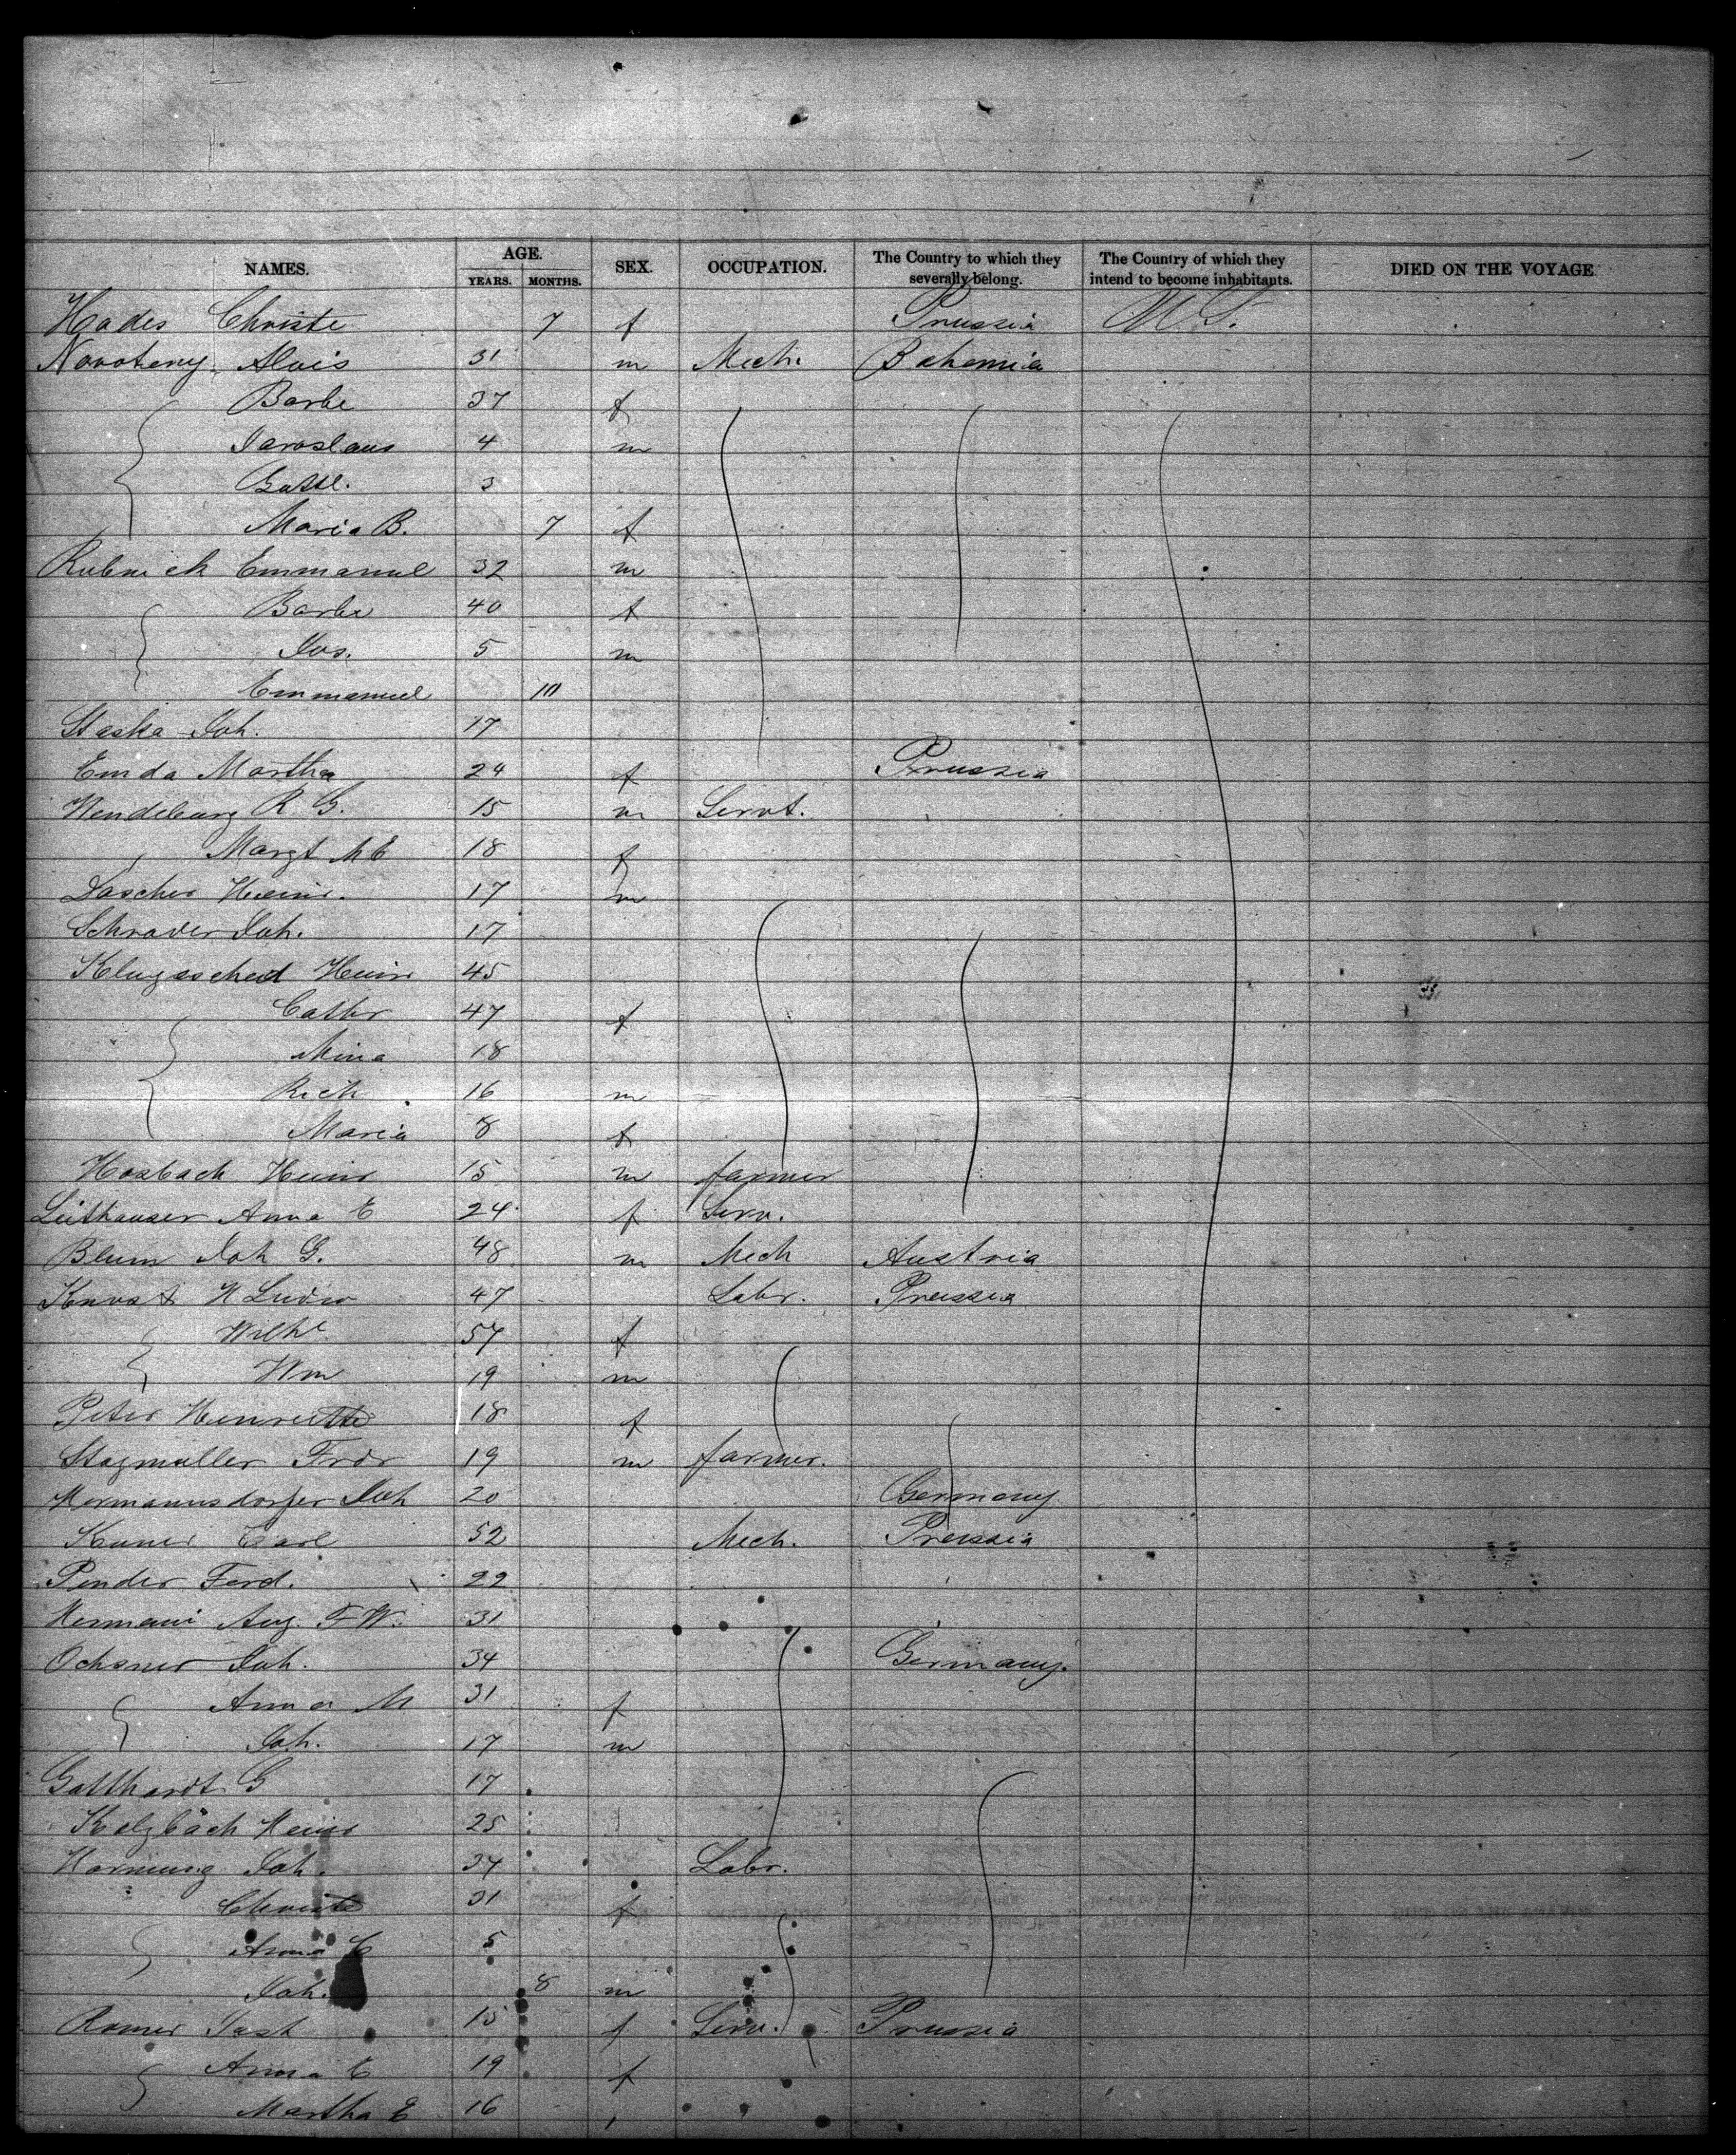 NAMES. AGE. YEARS. MONTHS. SEX. OCCUPATION. The Country to which they severally belong. The Country of which they intend to become inhabitants. DIED ON THE VOYAGE.
Hades Christe 7 f Prussia U S.
Novoteny Alois 31 m Mech. Bohemia
Barbe 37 f
Jaroslaus 4 m
3
Maria B. 7 f
Rubnick Emmanuel 32 m
Barbe 40 f
Jos. 5 m
Emmanuel 10
Staska Joh. 17
Emda Martha 24 f Prussia
Wendeburg R G. 15 m Servt.
Margt M E 18 f
Heinr. 17 m
Schrader Joh. 17
Heinr 45
Cathr 47 f
Mina 18
Rich 16 m
Maria 8 f
Hosbach Heinr 15 m farmer
Leithauser Anna E 24 f Serv.
Blum Joh G. 48 m Mech Austria
W Ludw 47 Labr. Prussia
Wilhe 57 f
Wm 19 m
Peter Henriette 18 f
Stagmuller Fredr 19 m farmer.
Hermannsdorfer Joh 20 Germany
Carl 52 Mech. Prussia
Pender Ferd. 22
Hermani Aug. F W. 31
Ochsner Joh. 34 Germany.
Anna M 31 f
Joh. 17 m
Gotthardt G 17
Kolzbach Heinr 25
Hornung Joh. 34 Labr.
Christe 31 f
Anna C 5
Joh. 8 m
Romer 15 f Serv. Prussia
Anna C 19 f
Martha E 16